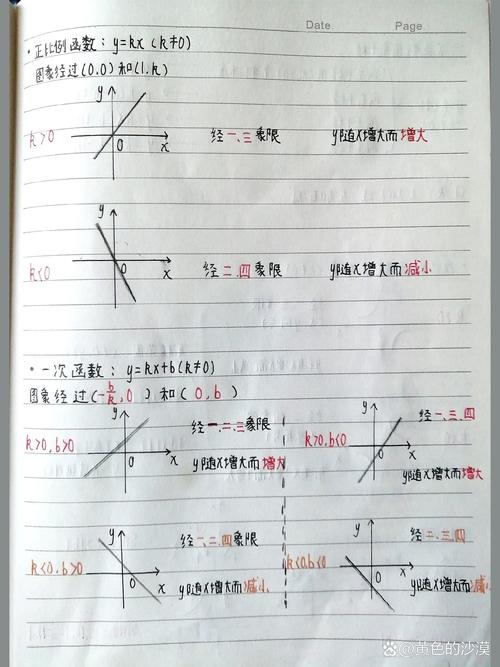 Date. Page.
·正比例函数: y=kx (k≠0)
图象经过(0.0)和(1.k)
k>0 y x 0 经一.三象限 y随x增大而增大
k<0 y x 0 经二.四象限 y随x增大而减小
·一次函数: y=kx+b(k≠0)
图象经过(-b/k,0)和(0,b)
k>0,b>0 y x 0 经一.二.三象限 y随x增大而增大
k>0,b<0 y x 0 经一.三.四 y随x增大而增大
k<0,b>0 y x 0 经一.二.四象限 y随x增大而减小
k<0,b<0 y x 0 经二.三.四 y随x增大而减小
@黄色的沙漠